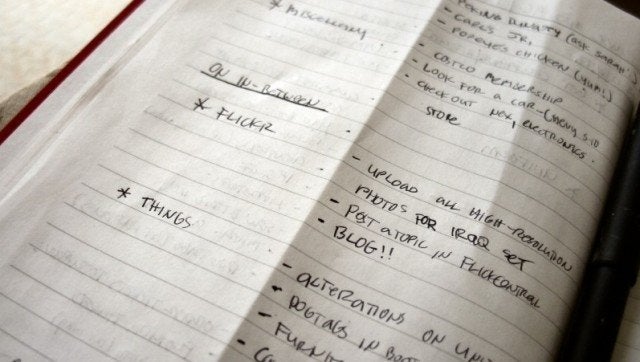 * MISCELLANY
(ASK SARAH)
- CARL'S JR.
- POPEYES CHICKEN (YUM!)
- COSTCO MEMBERSHIP
- LOOK FOR A CAR -
- CHECKOUT NEX, ELECTRONICS
STORE
ON IN-BETWEEN
* FLICKR
- UPLOAD ALL HIGH-RESOLUTION
PHOTOS FOR IRAQ SET
- POST A TOPIC IN FLICKCENTRAL
- BLOG!!
* THINGS
- ALTERATIONS ON
- DOGTAGS IN